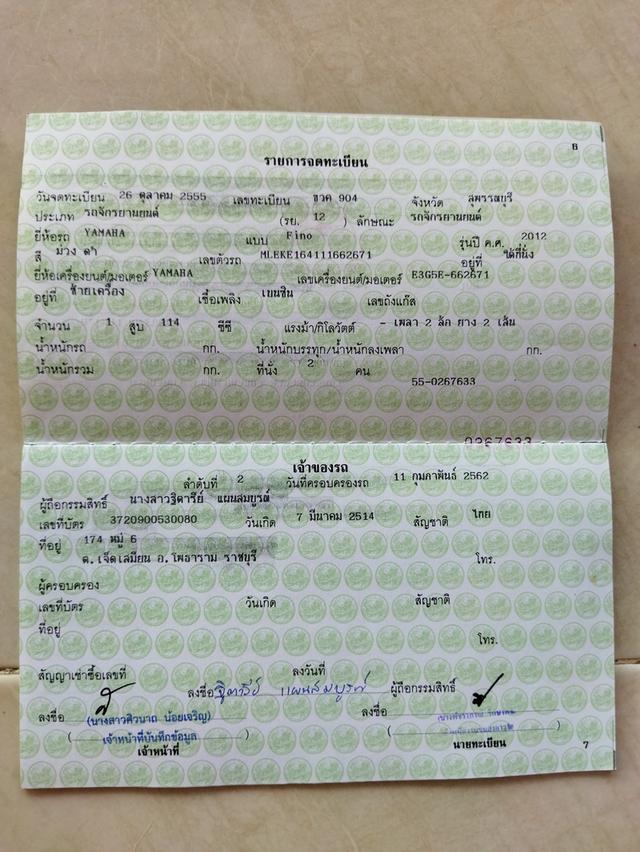 6
รายการจดทะเบียน
วันจดทะเบียน 26 ตุลาคม 2555 เลขทะเบียน ขวค 904 จังหวัด สุพรรณบุรี
ประเภท รถจักรยานยนต์ (รย. 12 ) ลักษณะ รถจักรยานยนต์
ยี่ห้อรถ YAMAHA แบบ Fino รุ่นปี ค.ศ. 2012
สี ม่วง ดำ เลขตัวรถ MLEKE164111662671 อยู่ที่ ใต้ที่นั่ง
ยี่ห้อเครื่องยนต์/มอเตอร์ YAMAHA เลขเครื่องยนต์/มอเตอร์ E3G5E-662671
อยู่ที่ ซ้ายเครื่อง เชื้อเพลิง เบนซิน เลขถังแก๊ส
จำนวน 1 สูบ 114 ซีซี แรงม้า/กิโลวัตต์ - เพลา 2 ล้อ ยาง 2 เส้น
น้ำหนักรถ กก. น้ำหนักบรรทุก/น้ำหนักลงเพลา กก.
น้ำหนักรวม กก. ที่นั่ง 2 คน
55-0267633
0267633
เจ้าของรถ
ลำดับที่ 2 วันที่ครอบครองรถ 11 กุมภาพันธ์ 2562
ผู้ถือกรรมสิทธิ์ นางสาวฐิตารีย์ แผนสมบูรณ์
เลขที่บัตร 3720900530080 วันเกิด 7 มีนาคม 2514 สัญชาติ ไทย
ที่อยู่ 174 หมู่ 6
ต.เจ็ดเสมียน อ.โพธาราม ราชบุรี โทร.
ผู้ครอบครอง
เลขที่บัตร วันเกิด สัญชาติ
ที่อยู่
โทร.
สัญญาเช่าซื้อเลขที่ ลงวันที่
ลงชื่อ ฐิตารีย์ แผนสมบูรณ์ ผู้ถือกรรมสิทธิ์
ลงชื่อ ลงชื่อ
(นางสาวศิวนาถ น้อยเจริญ)
( เจ้าหน้าที่บันทึกข้อมูล ) ( )
เจ้าหน้าที่ นายทะเบียน 7